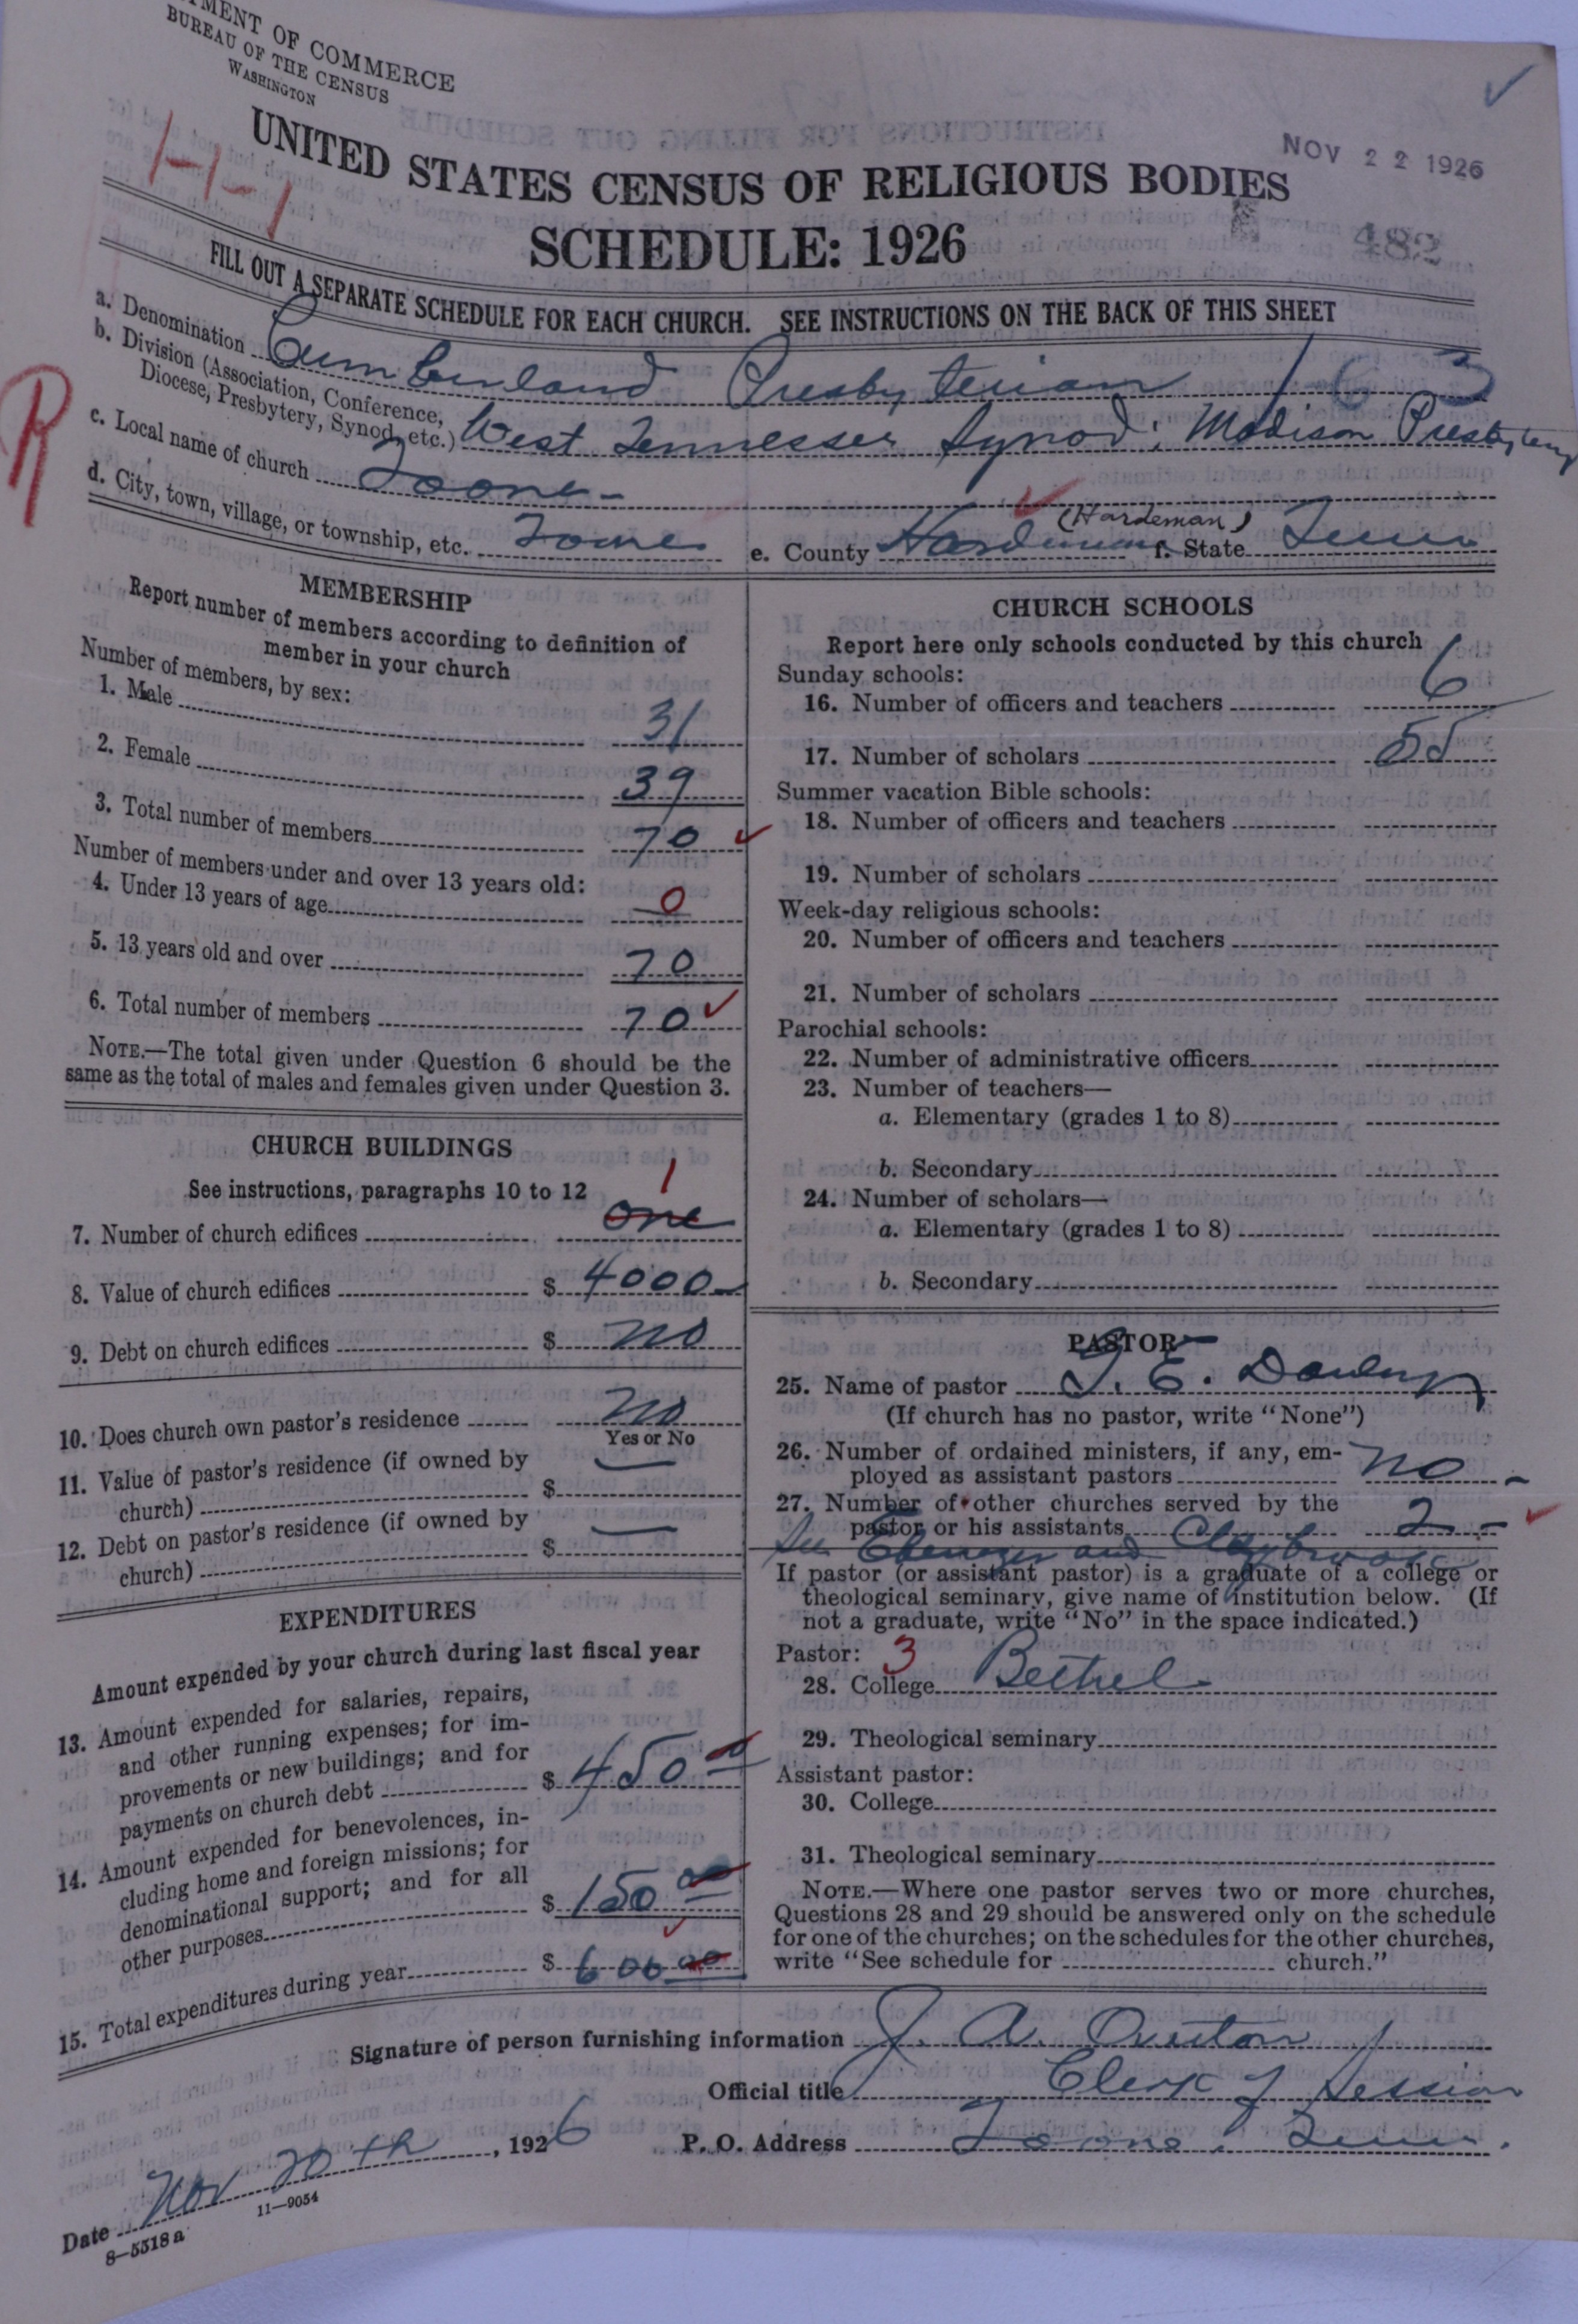 TMENT OF COMMERCE
BUREAU OF THE CENSUS
WASHINGTON
NOV 22 1926
1-1-1
UNITED STATES CENSUS OF RELIGIOUS BODIES
SCHEDULE: 1926
482
FILL OUT A SEPARATE SCHEDULE FOR EACH CHURCH. SEE INSTRUCTIONS ON THE BACK OF THIS SHEET
R
a. Denomination Cumberland Presbyterian 1 6 3
b. Division (Association, Conference,
Diocese, Presbytery, Synod, etc.) West Tennessee Synod; Madison Presbytery
c. Local name of church Toone
d. City, town, village, or township, etc. Toone e. County Hardeman (Hardeman) f. State Tenn
MEMBERSHIP
Report number of members according to definition of
member in your church
Number of members, by sex:
1. Male 31
2. Female 39
3. Total number of members 70
Number of members under and over 13 years old:
4. Under 13 years of age 0
5. 13 years old and over 70
6. Total number of members 70
NOTE.—The total given under Question 6 should be the
same as the total of males and females given under Question 3.
CHURCH BUILDINGS
See instructions, paragraphs 10 to 12
1
7. Number of church edifices one
8. Value of church edifices $ 4000
9. Debt on church edifices $ no
10. Does church own pastor's residence no
Yes or No
11. Value of pastor's residence (if owned by
church) $ —
12. Debt on pastor's residence (if owned by
church) $ —
EXPENDITURES
Amount expended by your church during last fiscal year
13. Amount expended for salaries, repairs,
and other running expenses; for im-
provements or new buildings; and for
payments on church debt $ 450 00
14. Amount expended for benevolences, in-
cluding home and foreign missions; for
denominational support; and for all
other purposes $ 150 00
15. Total expenditures during year $ 600 00
CHURCH SCHOOLS
Report here only schools conducted by this church
Sunday schools:
16. Number of officers and teachers 6
17. Number of scholars 55
Summer vacation Bible schools:
18. Number of officers and teachers
19. Number of scholars
Week-day religious schools:
20. Number of officers and teachers
21. Number of scholars
Parochial schools:
22. Number of administrative officers
23. Number of teachers—
a. Elementary (grades 1 to 8)
b. Secondary
24. Number of scholars—
a. Elementary (grades 1 to 8)
b. Secondary
PASTOR
25. Name of pastor E.
(If church has no pastor, write "None")
26. Number of ordained ministers, if any, em-
ployed as assistant pastors no
27. Number of other churches served by the
pastor or his assistants 2
See Ebenezer and Claybrook
If pastor (or assistant pastor) is a graduate of a college or
theological seminary, give name of institution below. (If
not a graduate, write "No" in the space indicated.)
Pastor: 3
28. College Bethel
29. Theological seminary
Assistant pastor:
30. College
31. Theological seminary
NOTE.—Where one pastor serves two or more churches,
Questions 28 and 29 should be answered only on the schedule
for one of the churches; on the schedules for the other churches,
write "See schedule for church."
Signature of person furnishing information J. A. Overton
Official title Clerk of Session
Date Nov 20th, 1926 P. O. Address Toone, Tenn.
8—5518a 11—9054